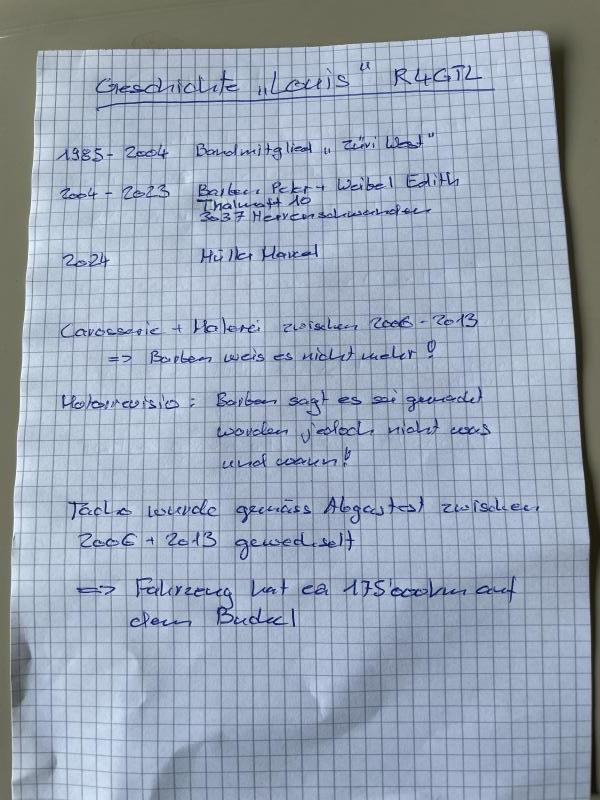 Geschichte „Louis" R4GTL
1985 - 2004 Bandmitglied „Züri West"
2004 - 2023 Barben Peter + Weibel Edith
Thalmatt 10
3037 Herrenschwanden
2024 Müller Marcel
Carosserie + Malerei zwischen 2006 - 2013
=> Barben weis es nicht mehr!
Motorrevisio: Barben sagt es sei gemacht
worden jedoch nicht was
und wann!
Tacho wurde gemäss Abgastest zwischen
2006 + 2013 gewechselt
=> Fahrzeug hat ca 175'000km auf
dem Buckel